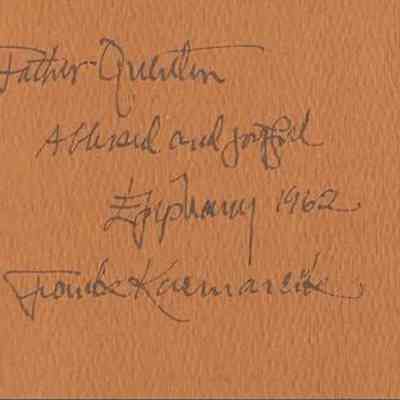 Father Quentin
A blessed and joyful
Epiphany 1962
Frank Kacmarcik